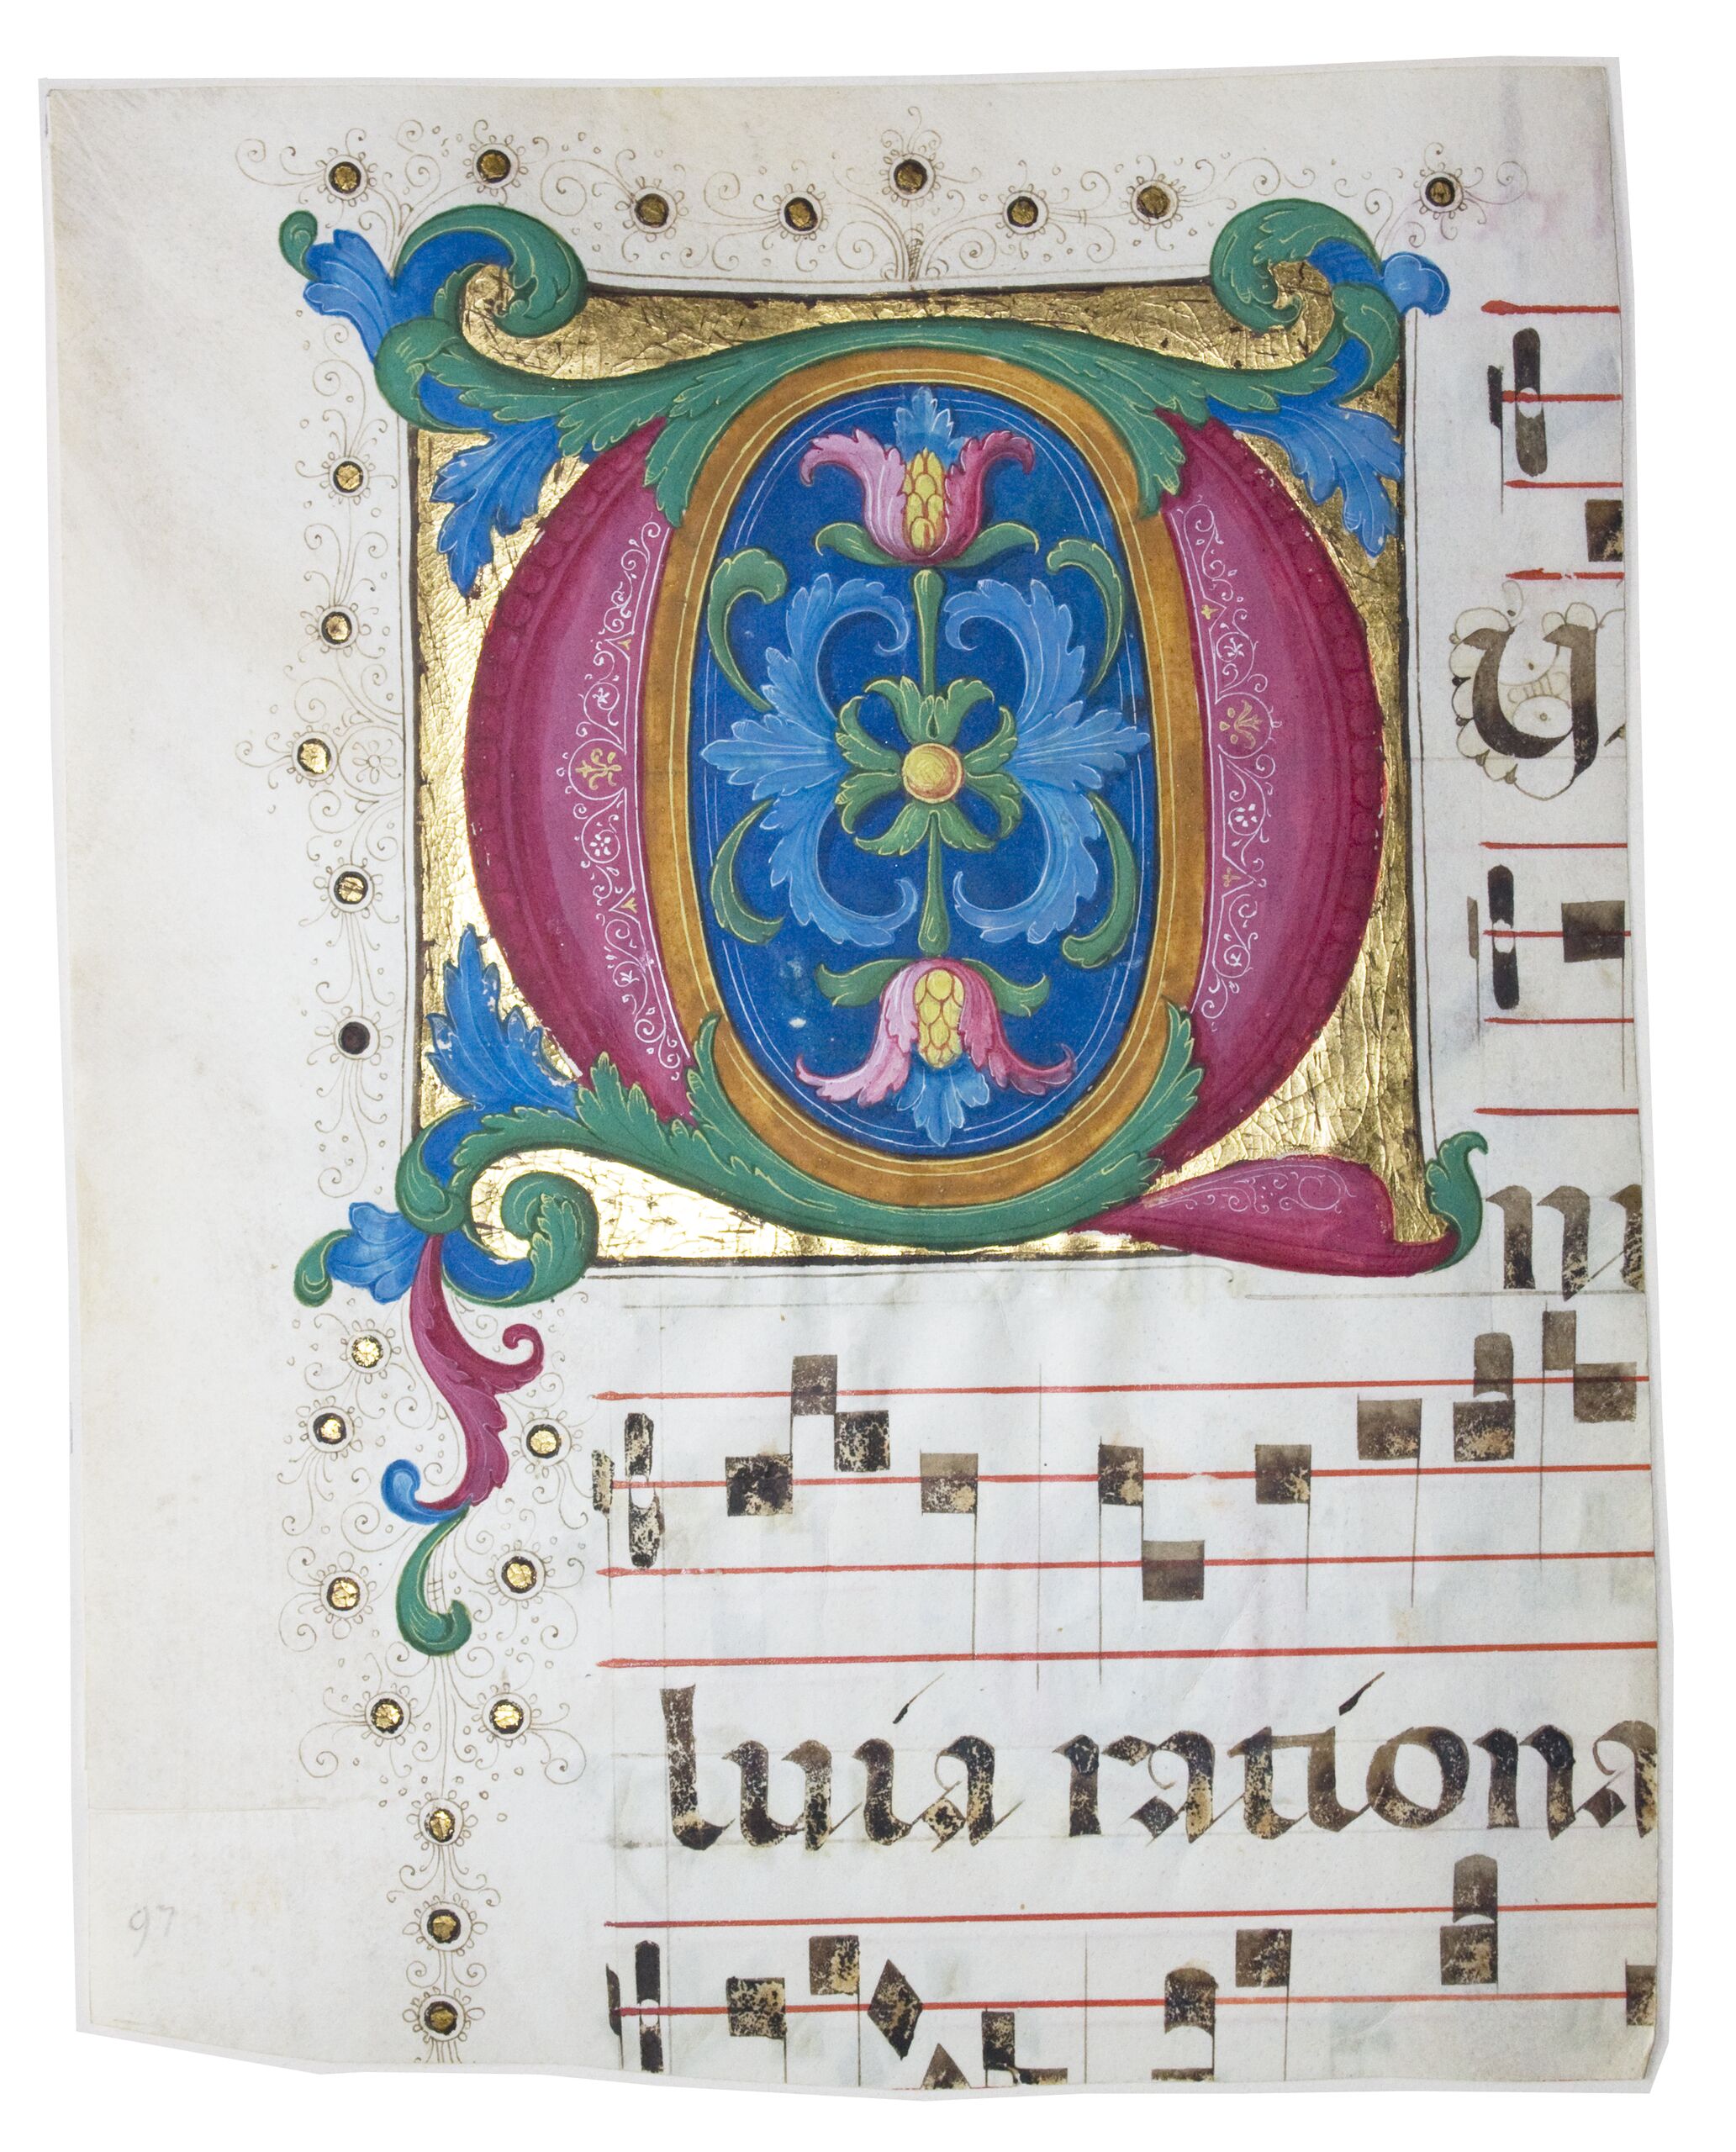 QU
m
luia rationa
97